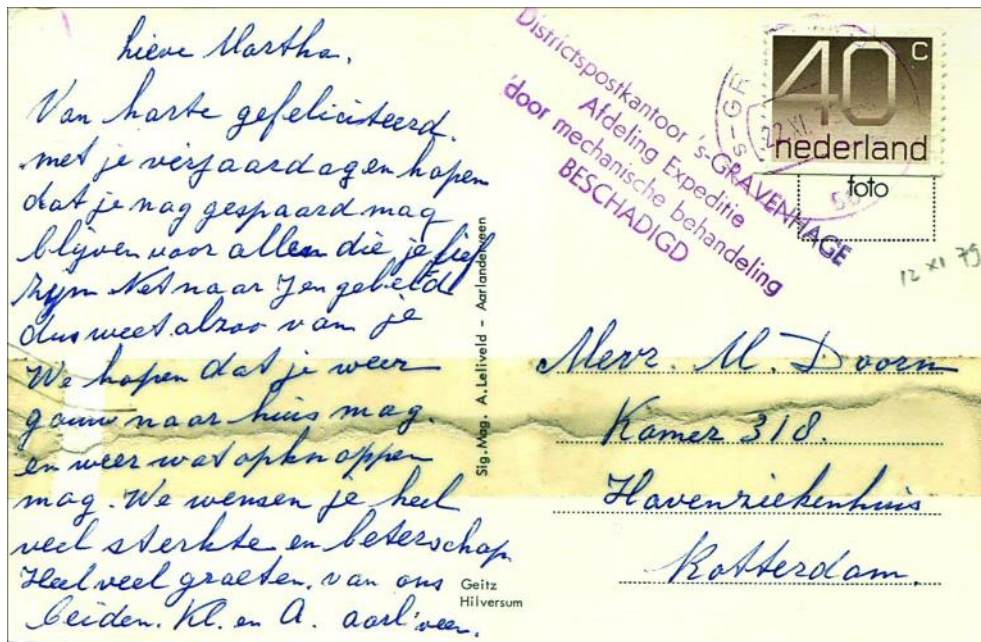 Lieve Martha.
Van harte gefeliciteerd.
met je verjaardag en hopen
dat je nog gespaard mag
blijven voor allen die je lief
zijn Net naar J en gebeld
dus weet alzoo van je
We hopen dat je weer
gauw naar huis mag.
en weer wat opknappen
mag. We wensen je heel
veel sterkte en beterschap.
Heel veel groeten. van ons
beiden. Kl. en A. aarl'veen.
Sig.Mag. A.Leliveld - Aarlanderveen
Geitz
Hilversum
Districtspostkantoor 's-GRAVENHAGE
Afdeling Expeditie
door mechanische behandeling
BESCHADIGD
40 c
nederland
foto
12 XI 79
Mevr. M. Doorn
Kamer 318.
Havenziekenhuis
Rotterdam.